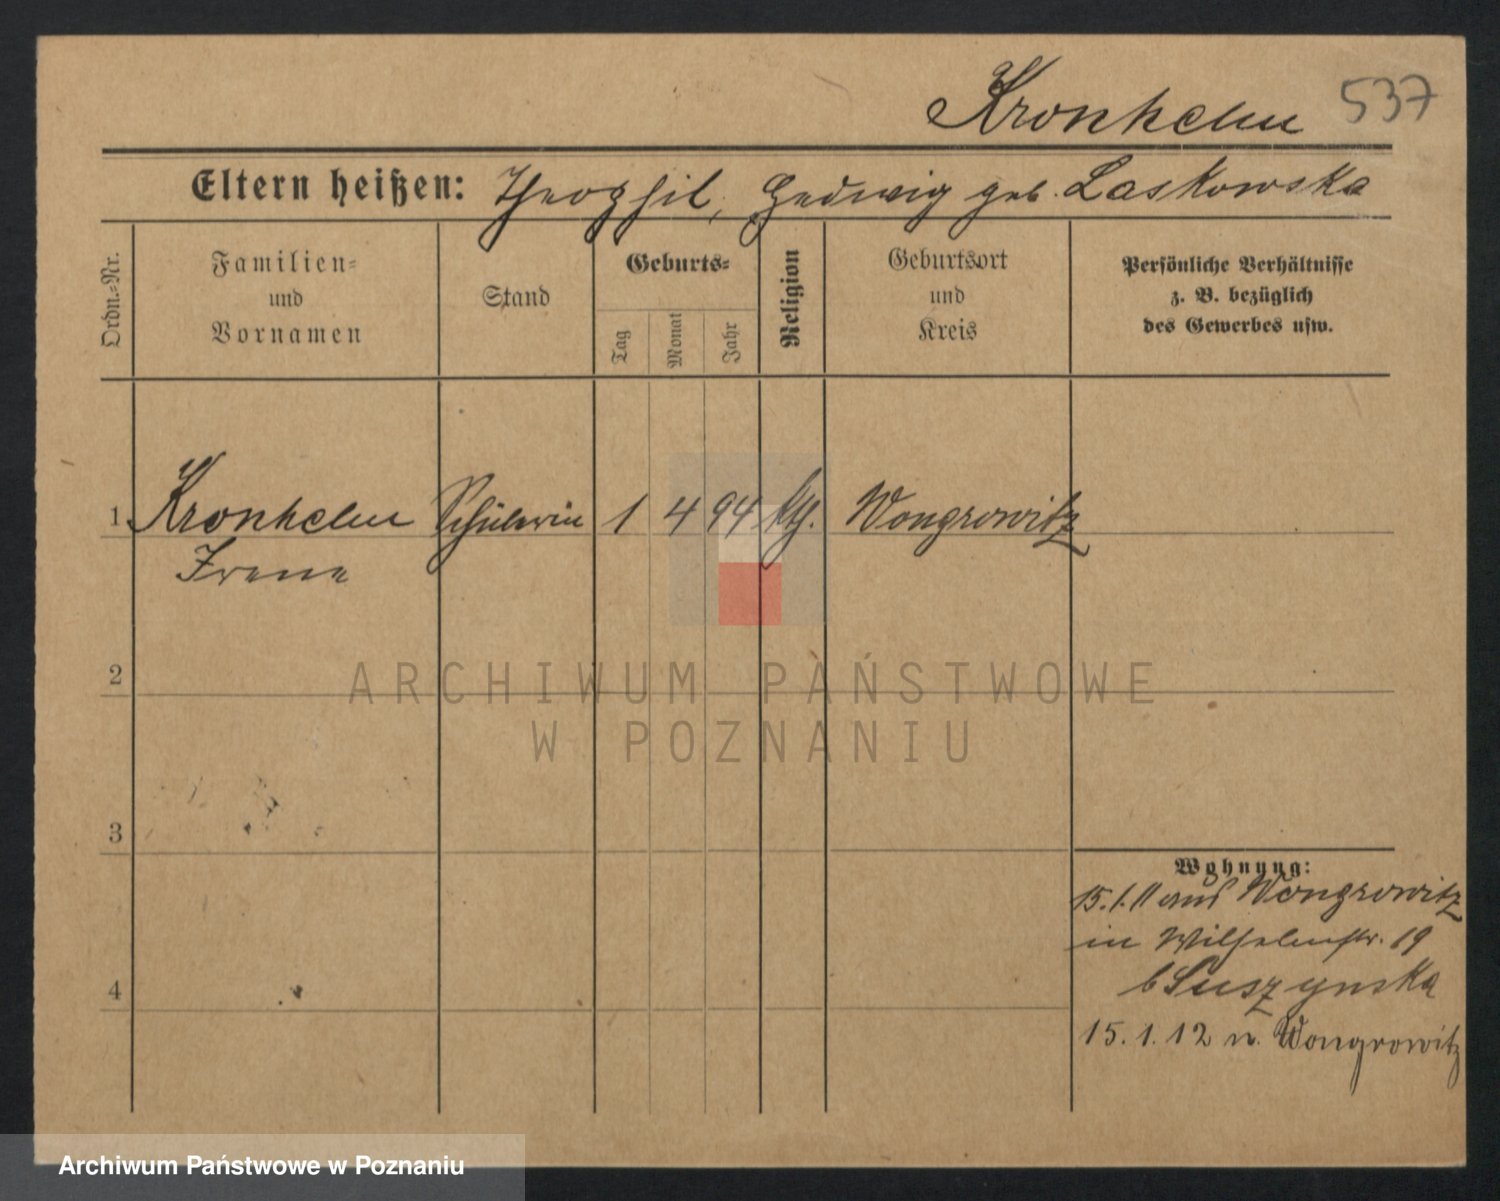 Kronhelm 537
Eltern heißen: Theophil, Hedwig geb. Laskowska
Ordn.=Nr.
Familien=
und
Vornamen
Stand
Geburts=
Tag
Monat
Jahr
Religion
Geburtsort
und
Kreis
Persönliche Verhältnisse
z. B. bezüglich
des Gewerbes usw.
1 Kronhelm Schülerin 1 4 94 kth. Wongrowitz
Irene
2
ARCHIWUM PAŃSTWOWE
W POZNANIU
3
Wohnung:
15.1.11 aus Wongrowitz
in Wilhelmstr. 19
b Suszynska
4
15.1.12 n. Wongrowitz
Archiwum Państwowe w Poznaniu